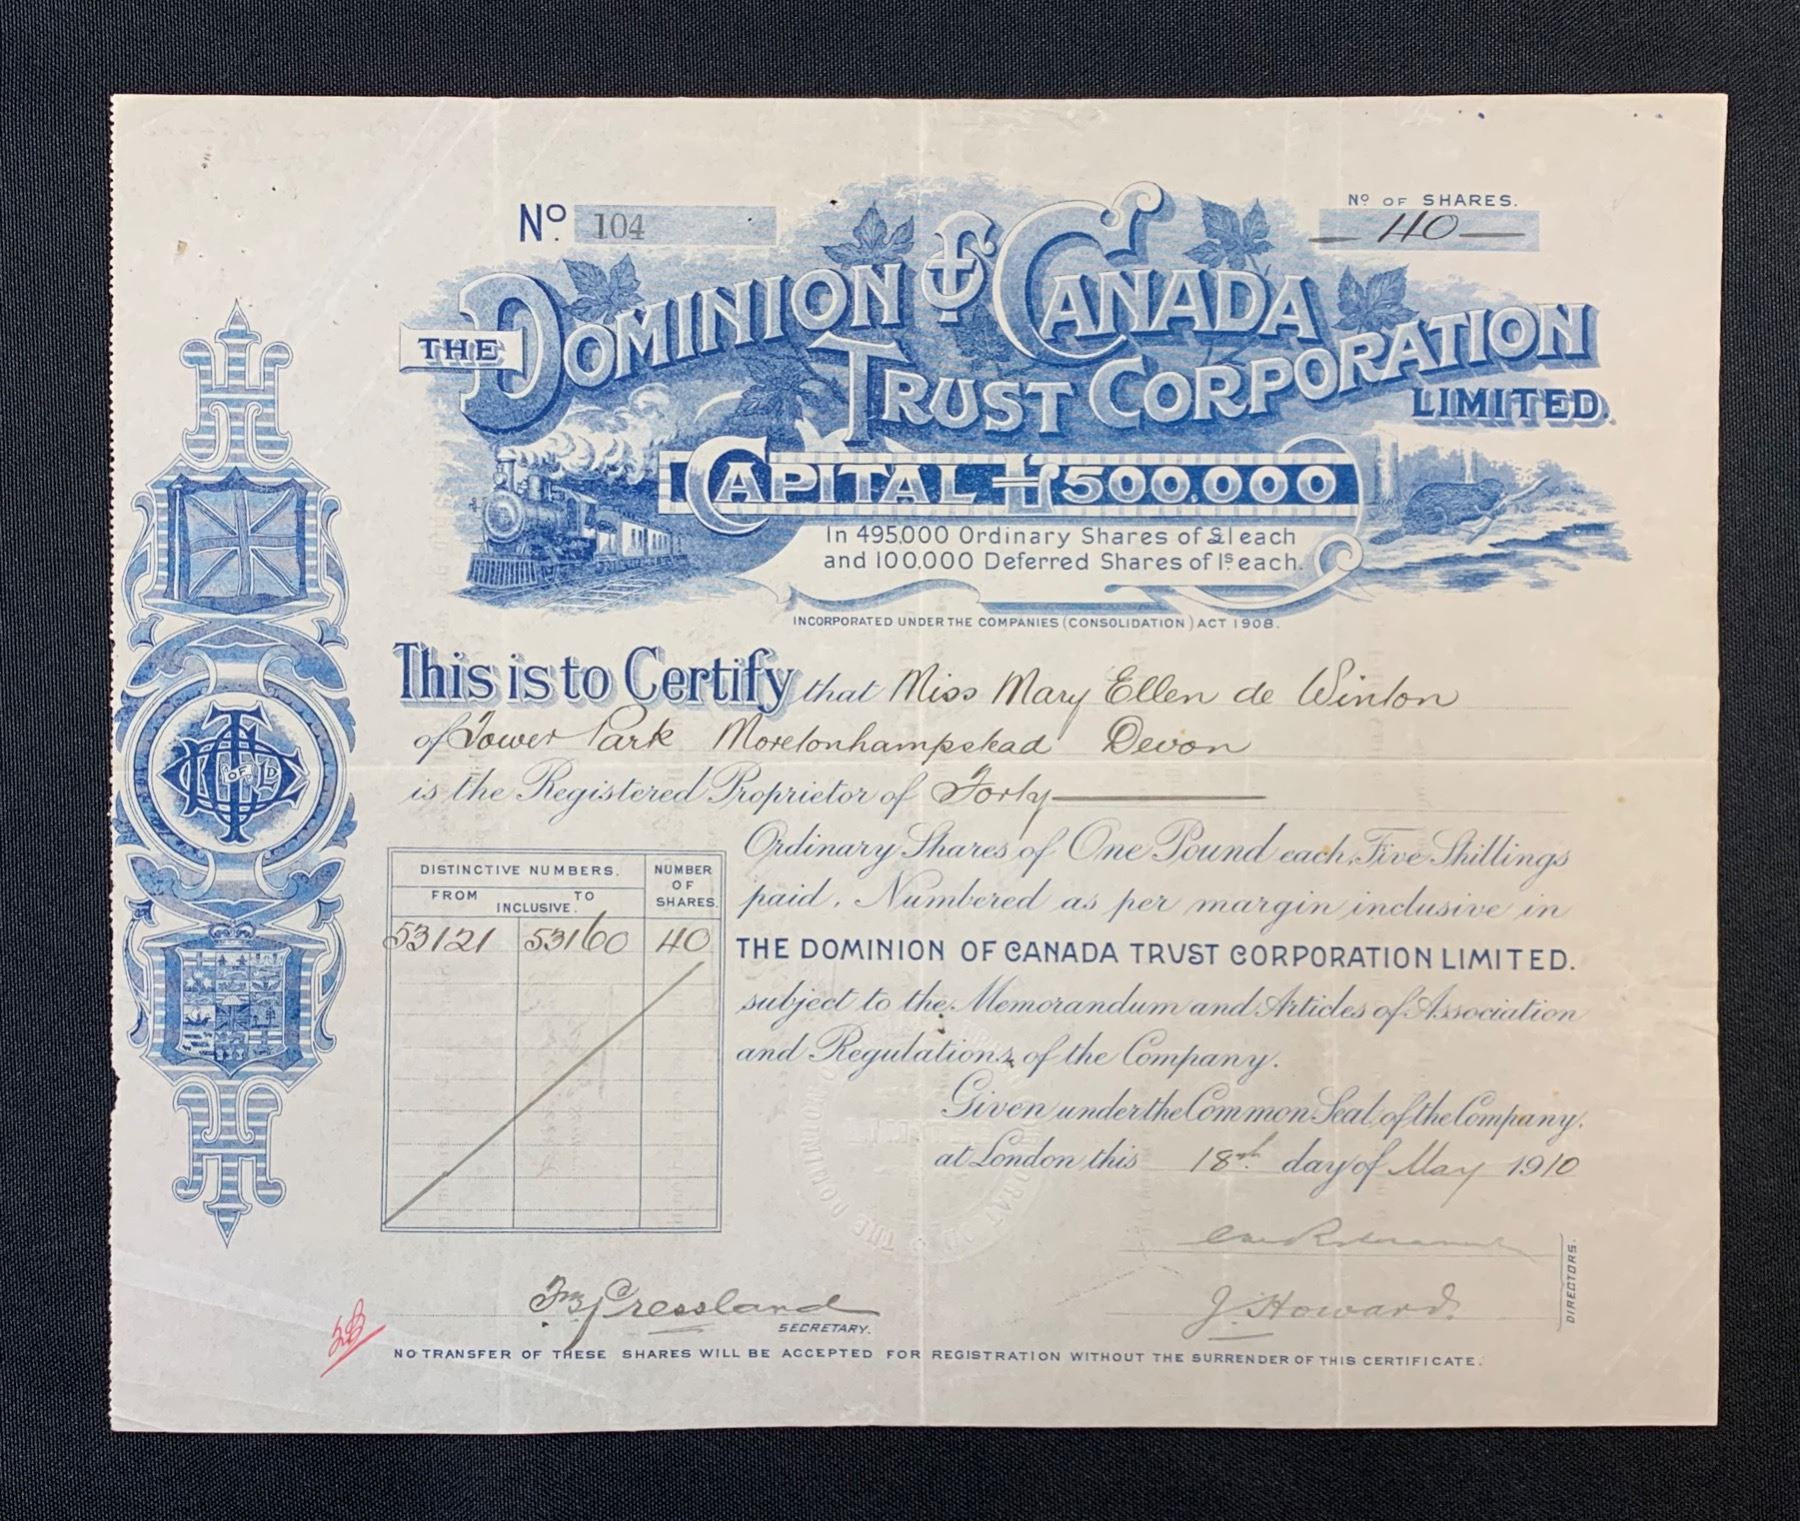 No. 104
No. OF SHARES.
— 40 —
THE DOMINION OF CANADA
TRUST CORPORATION
LIMITED.
CAPITAL £500,000
In 495,000 Ordinary Shares of £1 each
and 100,000 Deferred Shares of 1s. each.
INCORPORATED UNDER THE COMPANIES (CONSOLIDATION) ACT 1908.
This is to Certify that Miss Mary Ellen de Winton
of Tower Park Moretonhampstead Devon
is the Registered Proprietor of Forty
Ordinary Shares of One Pound each, Five Shillings
paid. Numbered as per margin inclusive in
THE DOMINION OF CANADA TRUST CORPORATION LIMITED.
subject to the Memorandum and Articles of Association
and Regulations of the Company.
DISTINCTIVE NUMBERS.
NUMBER OF SHARES.
FROM TO
INCLUSIVE.
53121 53160 40
OF LD
Given under the Common Seal of the Company.
at London this 18th day of May 1910
J. Howard
DIRECTORS.
Pressland
SECRETARY.
NO TRANSFER OF THESE SHARES WILL BE ACCEPTED FOR REGISTRATION WITHOUT THE SURRENDER OF THIS CERTIFICATE.